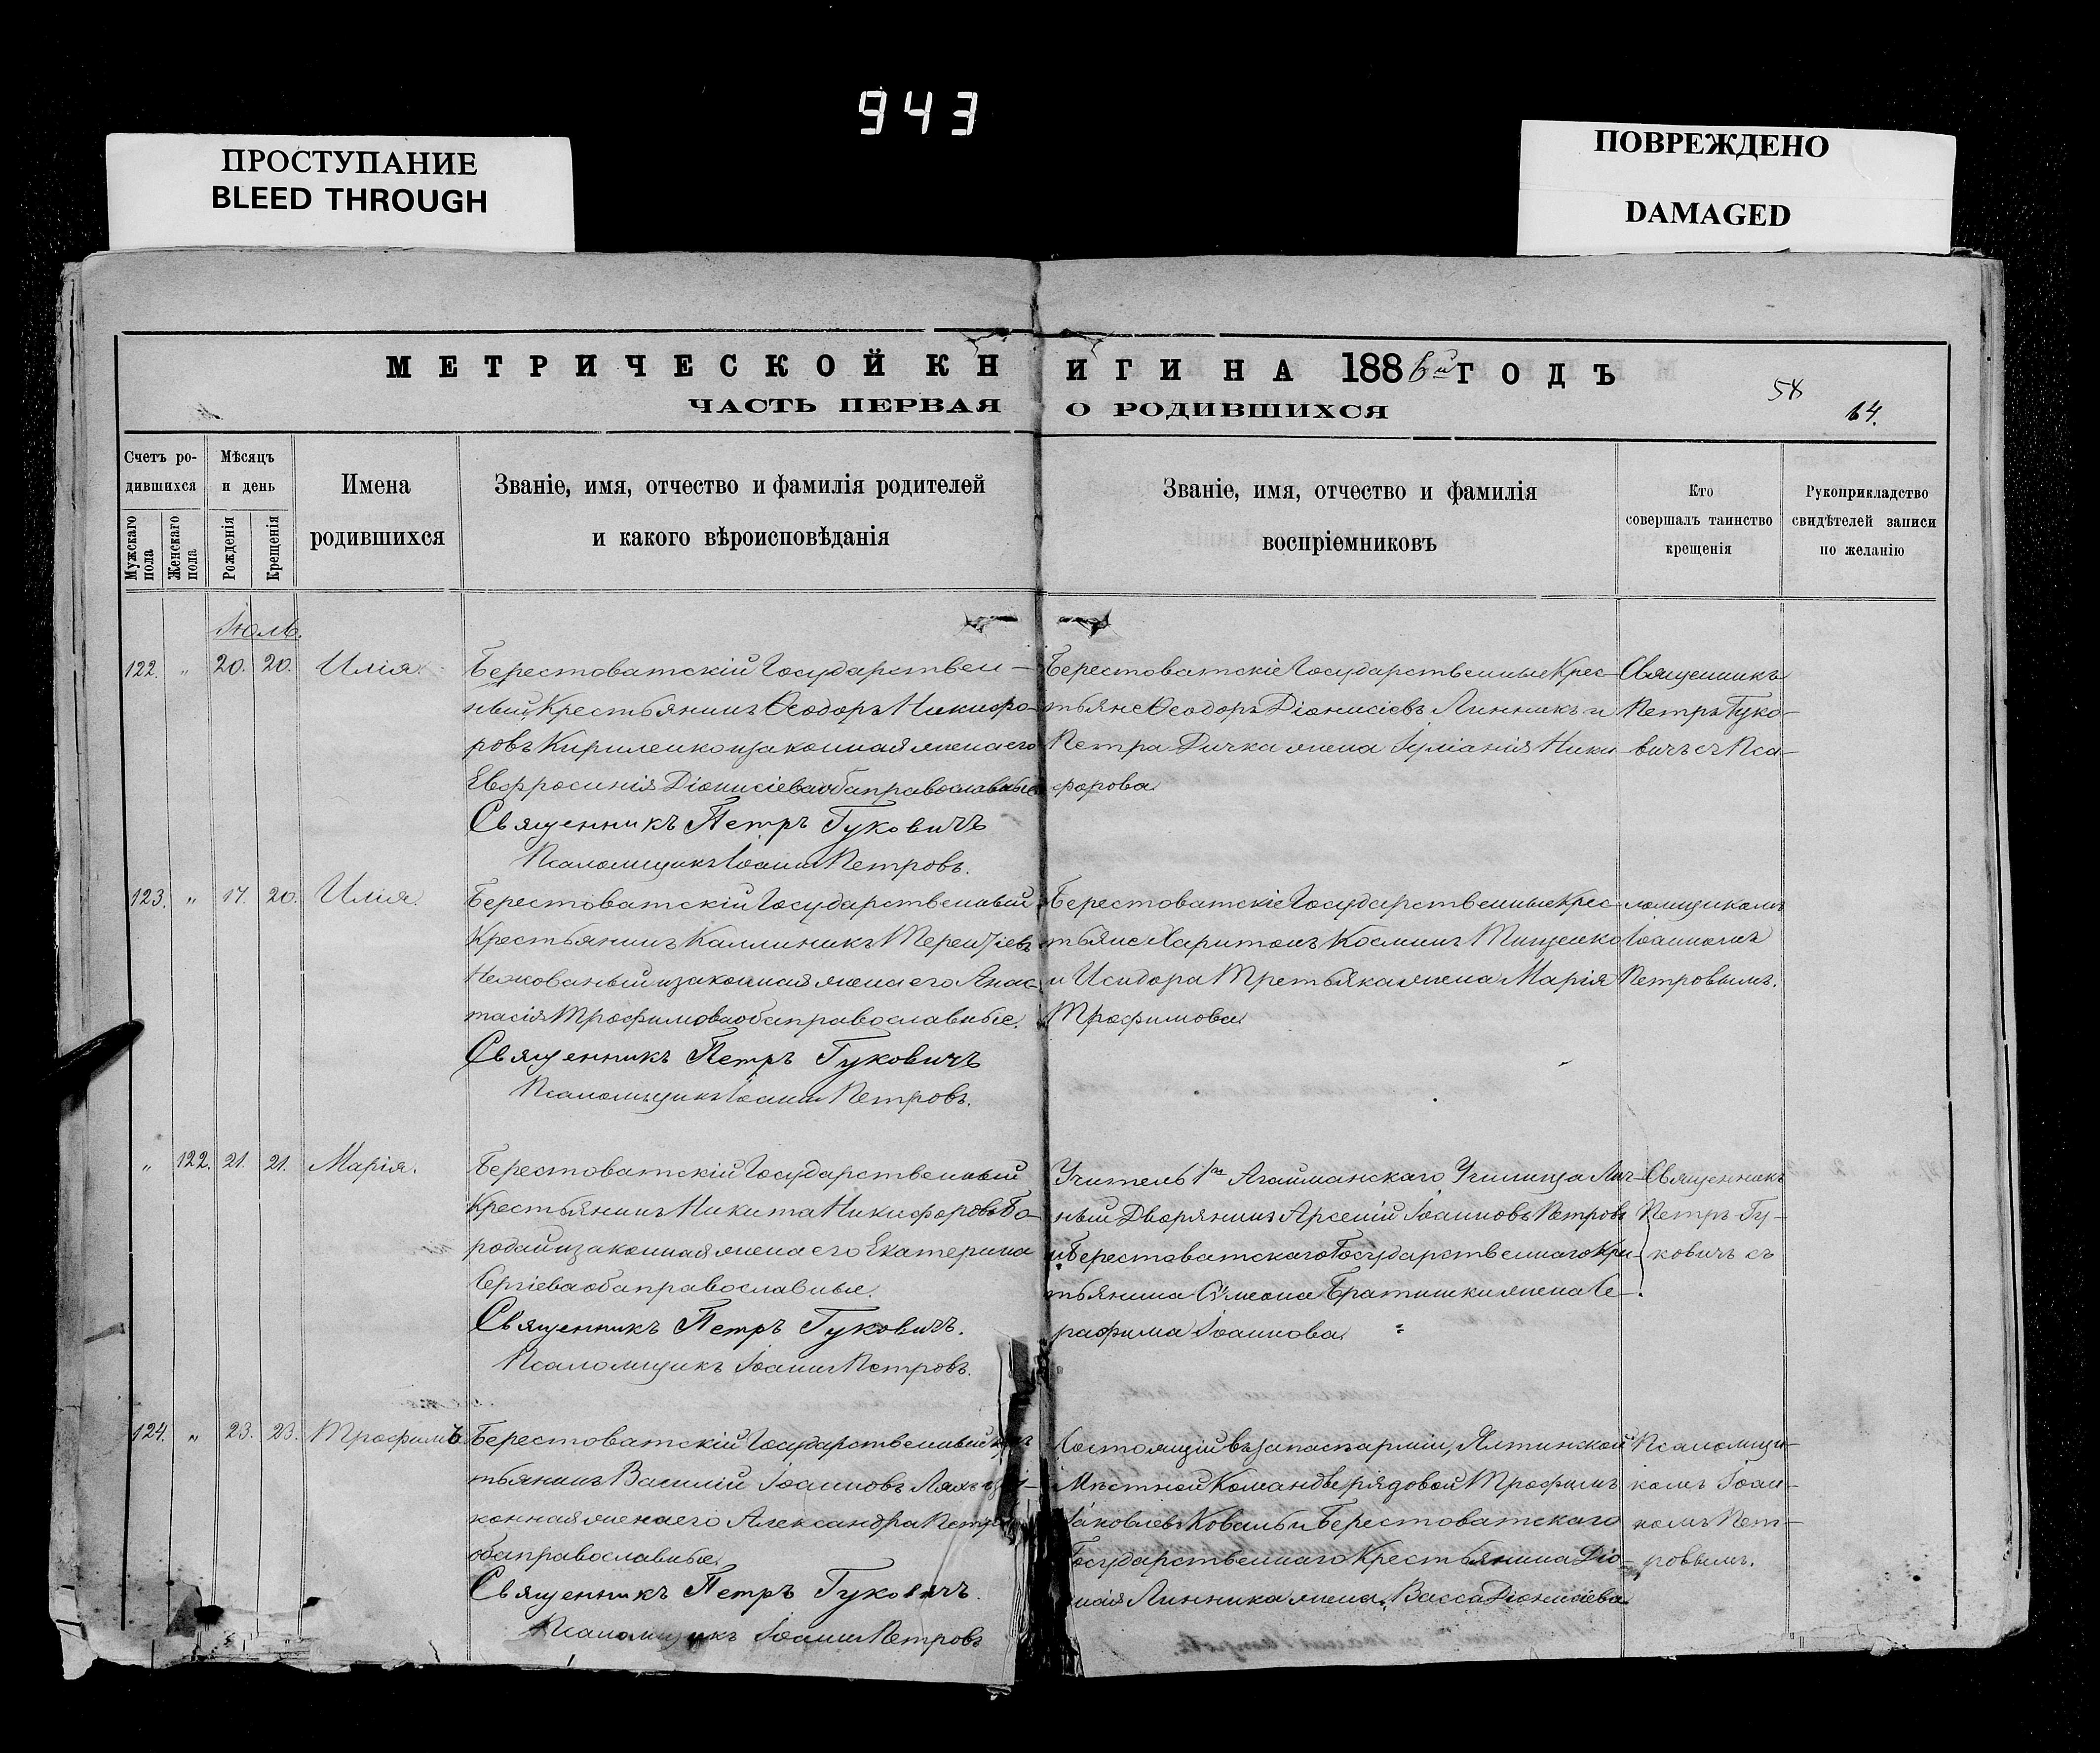 943
ПРОСТУПАНИЕ
BLEED THROUGH
ПОВРЕЖДЕНО
DAMAGED
МЕТРИЧЕСКОЙ КНИГИ НА 1886й ГОДЪ
ЧАСТЬ ПЕРВАЯ О РОДИВШИХСЯ
58
64.
Счетъ ро-
дившихся
Мужскаго пола
Женскаго пола
Мѣсяцъ
и день
Рожденія
Крещенія
Имена
родившихся
Званіе, имя, отчество и фамилія родителей
и какого вѣроисповѣданія
Званіе, имя, отчество и фамилія
воспріемниковъ
Кто
совершалъ таинство
крещенія
Рукоприкладство
свидѣтелей записи
по желанію
Іюль.
122. " 20. 20. Илія.
Берестоватскій Государствен-
ный Крестьянинъ Ѳеодоръ Никифо-
ровъ Кириленко и законная жена его
Евфросинія Діонисіева оба православные
Священникъ Петръ Гуковичъ
Псаломщикъ Іоаннъ Петровъ.
Берестоватскіе Государственные Крес-
тьяне Ѳеодоръ Діонисіевъ Линникъ и
Петра Дичка жена Іуліанія Ники
форова
Священникъ
Петръ Гуко-
вичъ съ Пса-
123. " 17. 20. Илія.
Берестоватскій Государственный
Крестьянинъ Каллиникъ Терентіевъ
Нежованый и законная жена его Анас-
тасія Трофимова оба православные.
Священникъ Петръ Гуковичъ
Псаломщикъ Іоаннъ Петровъ.
Берестоватскіе Государственные Крес-
тьяне Харитонъ Косминъ Тищенко
и Исидора Третьяка жена Марія
Трофимова
ломщикомъ
Іоанномъ
Петровымъ.
" 122. 21. 21. Марія.
Берестоватскій Государственный
Крестьянинъ Никита Никифоровъ Бо-
родай и законная жена его Екатерина
Сергіева оба православные.
Священникъ Петръ Гуковичъ.
Псаломщикъ Іоаннъ Петровъ.
Учитель 1го Агайманскаго Училища Лич-
ный Дворянинъ Арсеній Іоанновъ Петровъ
и Берестоватскаго Государственнаго Кре-
тьянина Сѵмеона Братишки жена Се-
рафима Іоаннова
Священникъ
Петръ Гу-
ковичъ съ
124. " 23. 23. Трофимъ.
Берестоватскій Государственный
тьянинъ Василій Іоанновъ Лях
конная жена его Александра
оба православные
Священникъ Петръ Гуковичъ.
Псаломщикъ Іоаннъ Петровъ
Состоящій въ запасѣ арміи, Ялтинской
Мѣстной Команды рядовой Трофимъ
Іаковлевъ Коваль и Берестоватскаго
Государственнаго Крестьянина Діо-
нисія Линника жена, Васса Діонисіева
Псаломщи-
комъ Іоан-
номъ Пет-
ровымъ.